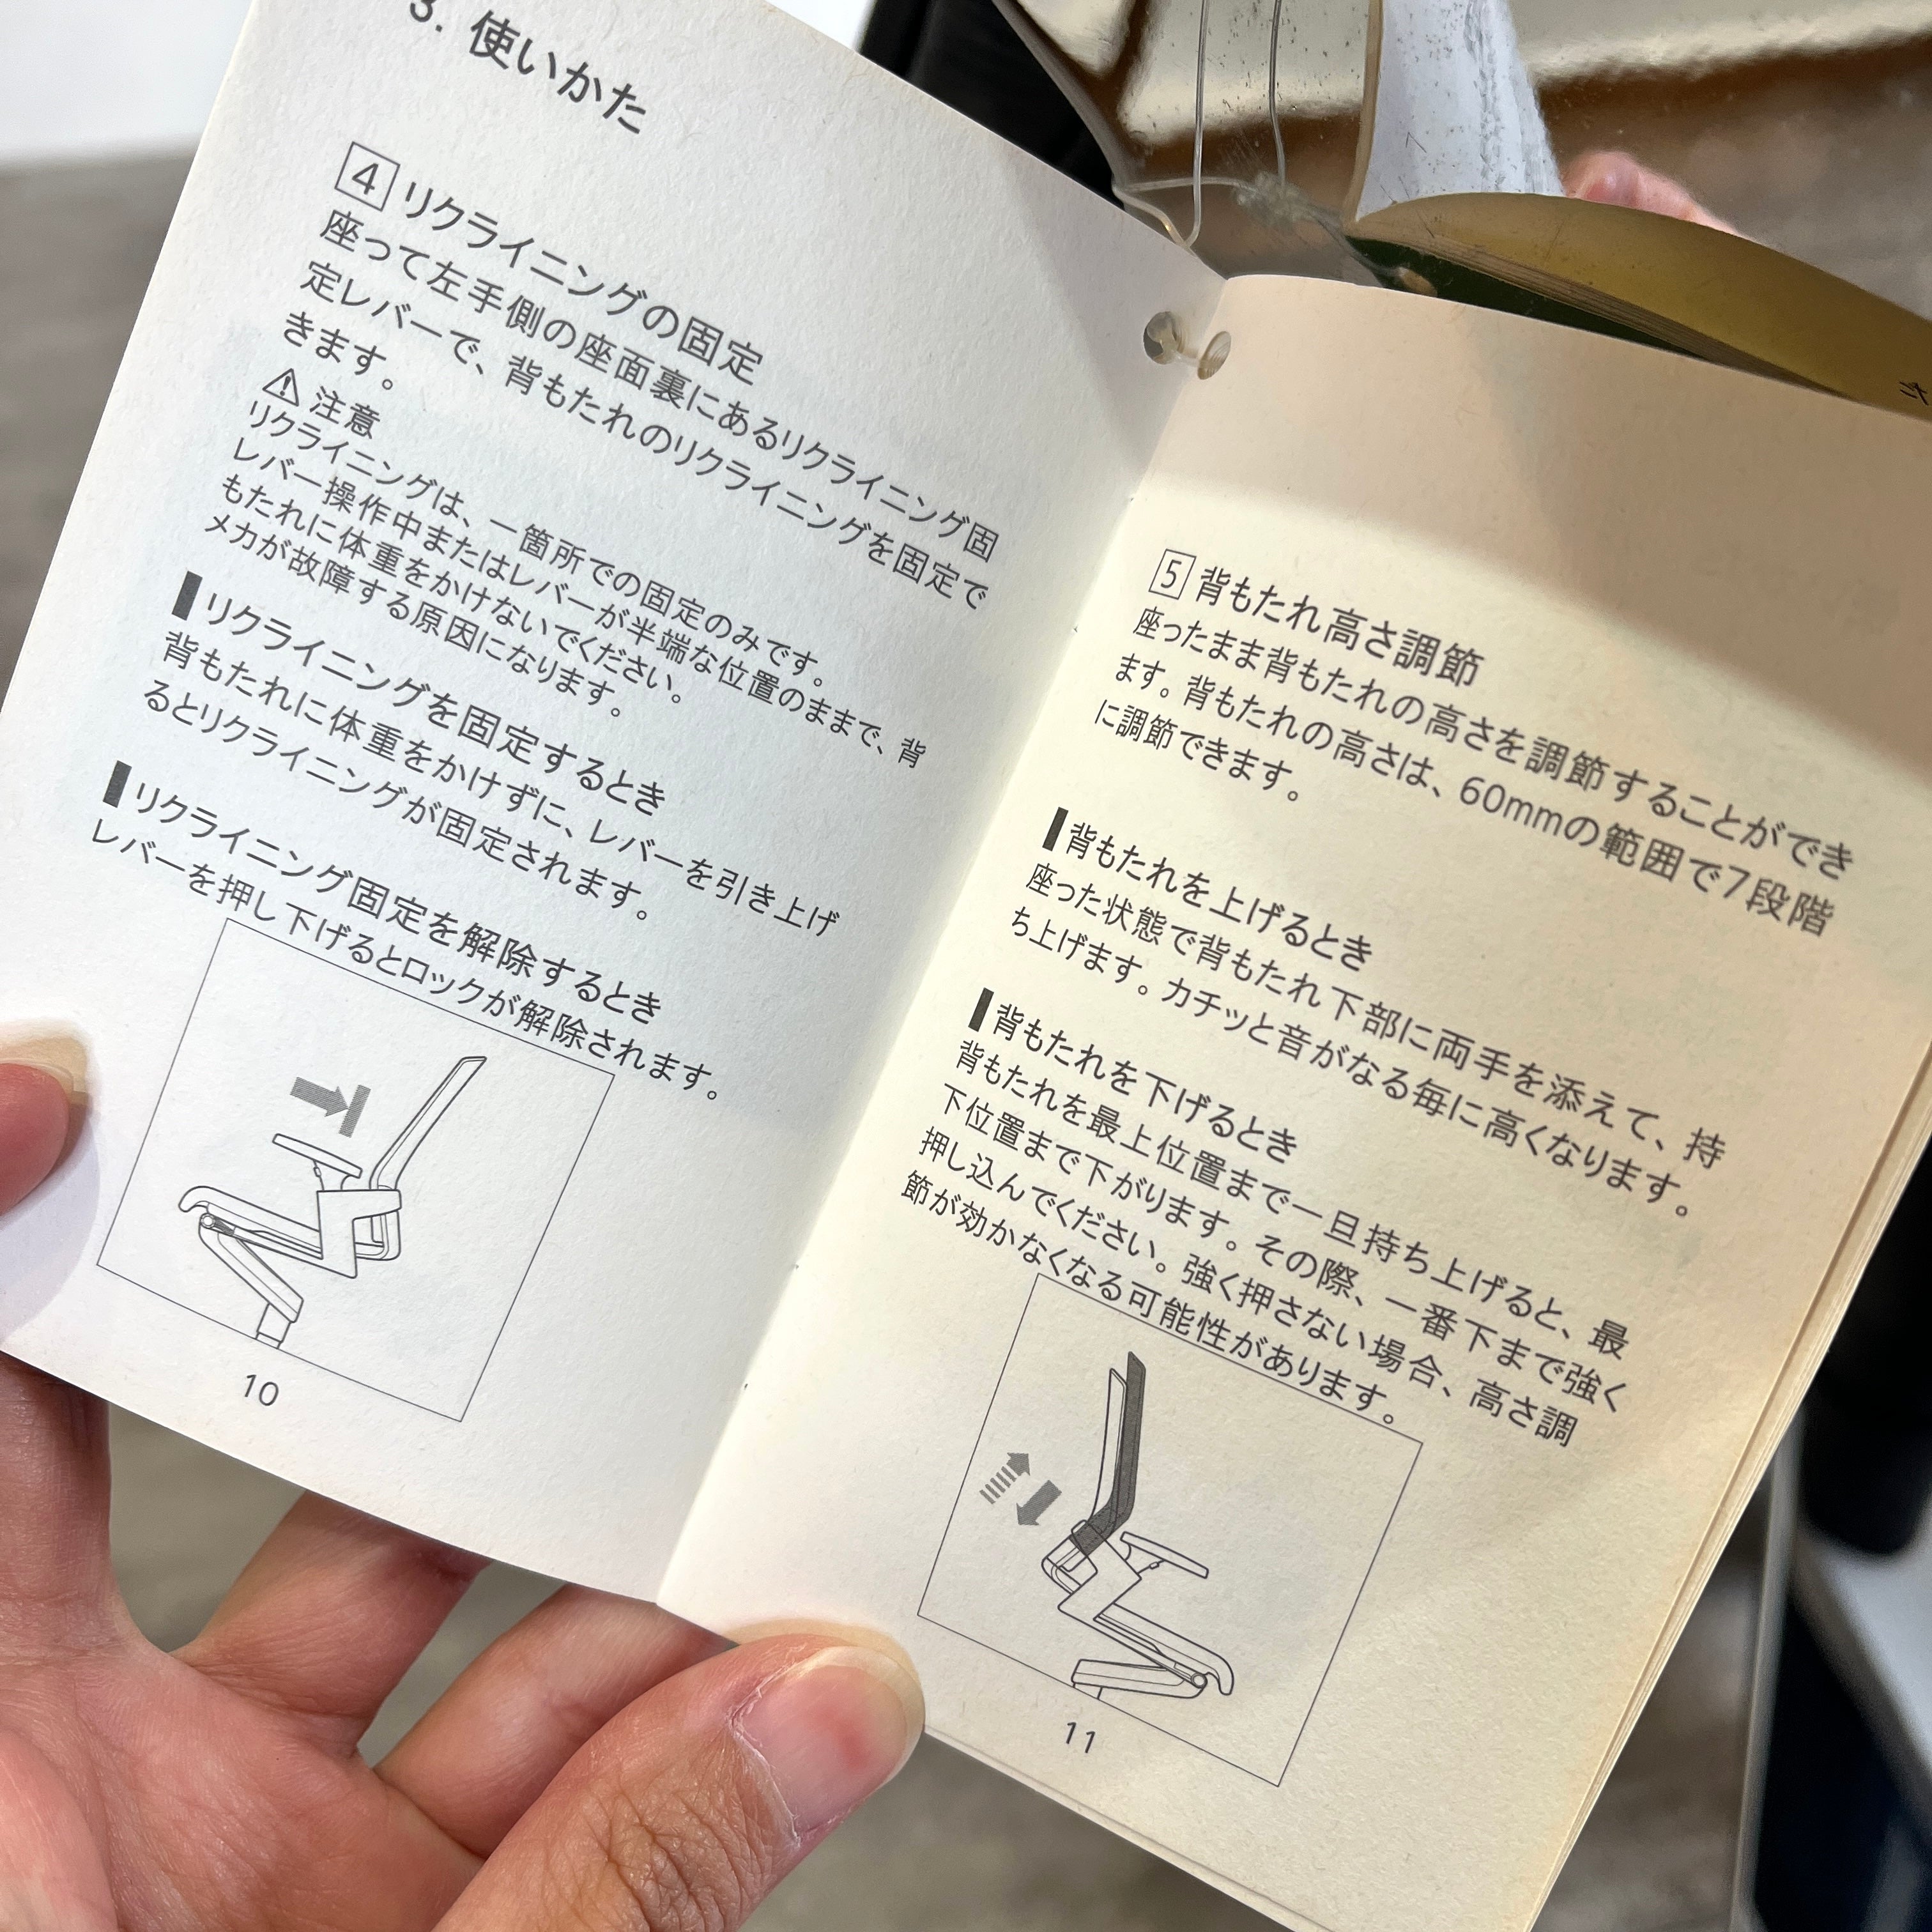 3. 使いかた
4 リクライニングの固定
座って左手側の座面裏にあるリクライニング固
定レバーで、背もたれのリクライニングを固定で
きます。
⚠ 注意
リクライニングは、一箇所での固定のみです。
レバー操作中またはレバーが半端な位置のままで、背
もたれに体重をかけないでください。
メカが故障する原因になります。
リクライニングを固定するとき
背もたれに体重をかけずに、レバーを引き上げ
るとリクライニングが固定されます。
リクライニング固定を解除するとき
レバーを押し下げるとロックが解除されます。
10
5 背もたれ高さ調節
座ったまま背もたれの高さを調節することができ
ます。背もたれの高さは、60mmの範囲で7段階
に調節できます。
背もたれを上げるとき
座った状態で背もたれ下部に両手を添えて、持
ち上げます。カチッと音がなる毎に高くなります。
背もたれを下げるとき
背もたれを最上位置まで一旦持ち上げると、最
下位置まで下がります。その際、一番下まで強く
押し込んでください。強く押さない場合、高さ調
節が効かなくなる可能性があります。
11